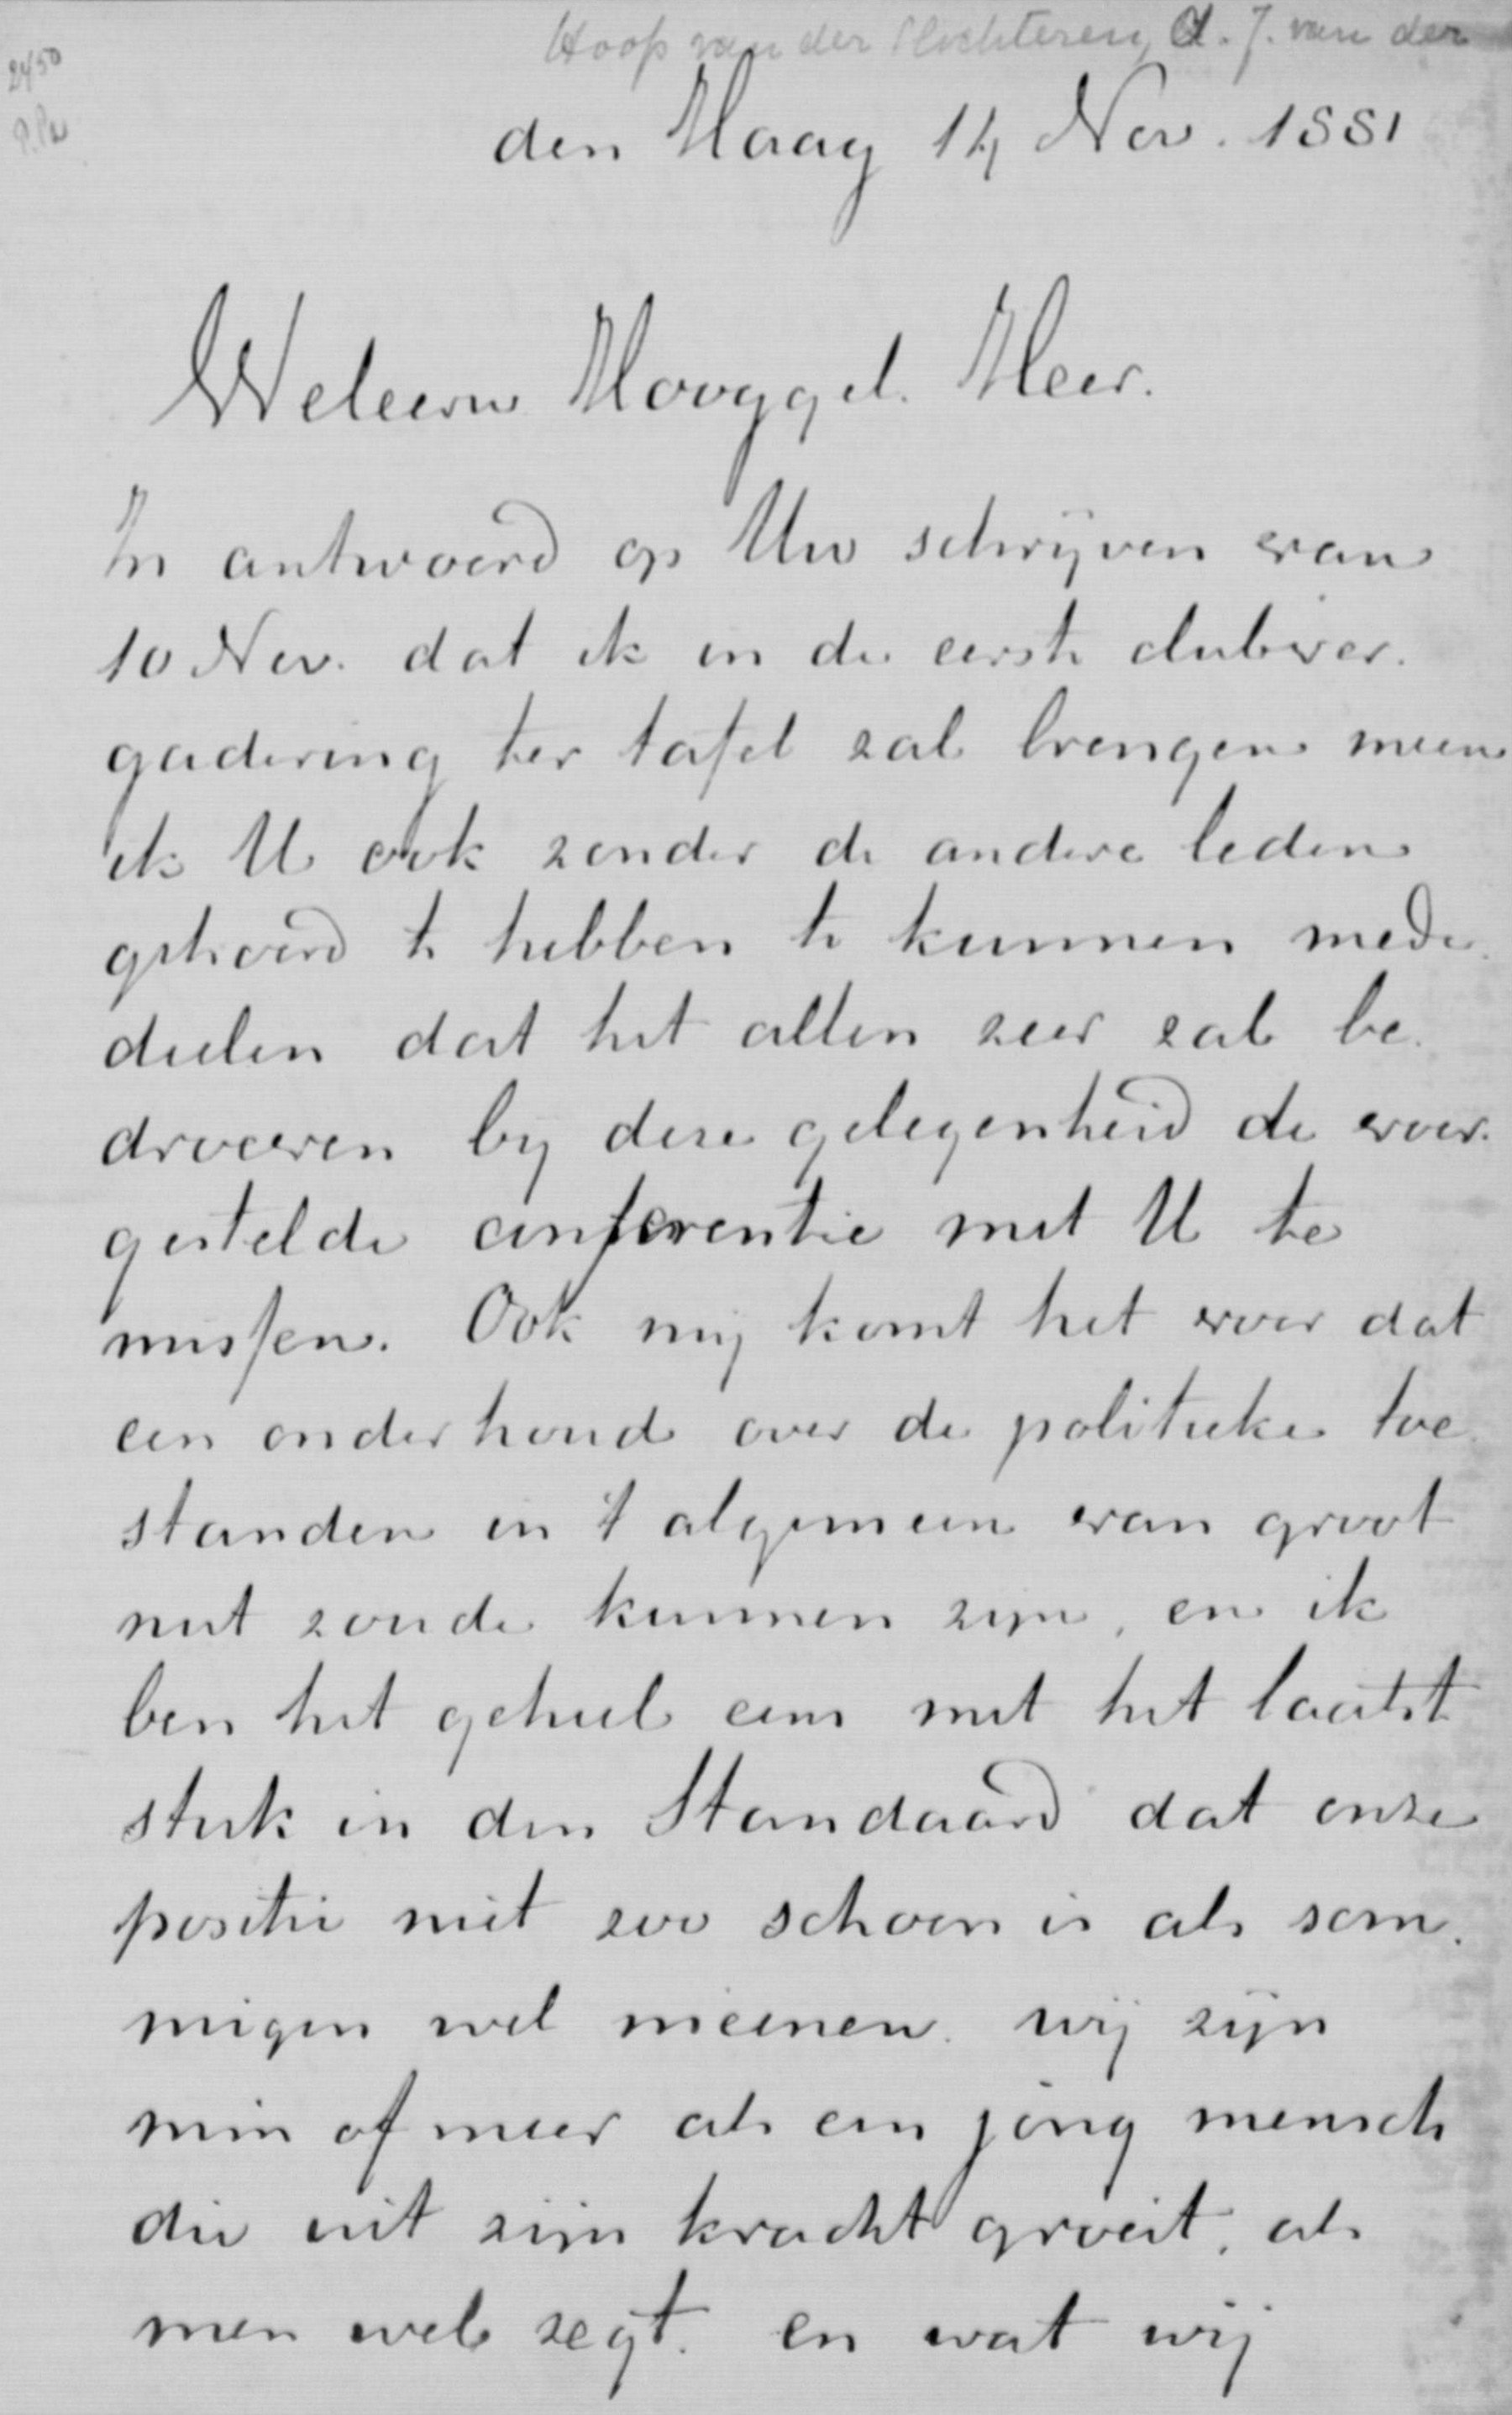 Hoop van der Slochteren, d. J. van der
2450
den Haag 14 Nov. 1881
Weleerw Hooggel. Heer.
In antwoord op Uw schrijven van
10 Nov. dat ik in de eerste clubver-
gadering ter tafel zal brengen meen
ik U ook zonder de andere leden
gehoord te hebben te kunnen mede-
deelen dat het allen zeer zal be-
droeven bij deze gelegenheid de voor-
gestelde conferentie met U te
missen. Ook mij komt het voor dat
een onderhoud over de politieke toe-
standen in 't algemeen van groot
nut zoude kunnen zijn, en ik
ben het geheel eens met het laatst
stuk in den Standaard dat onze
positie niet zoo schoon is als som-
migen wel meenen. wij zijn
min of meer als een jong mensch
die uit zijn kracht groeit, als
men wel zegt. en wat wij